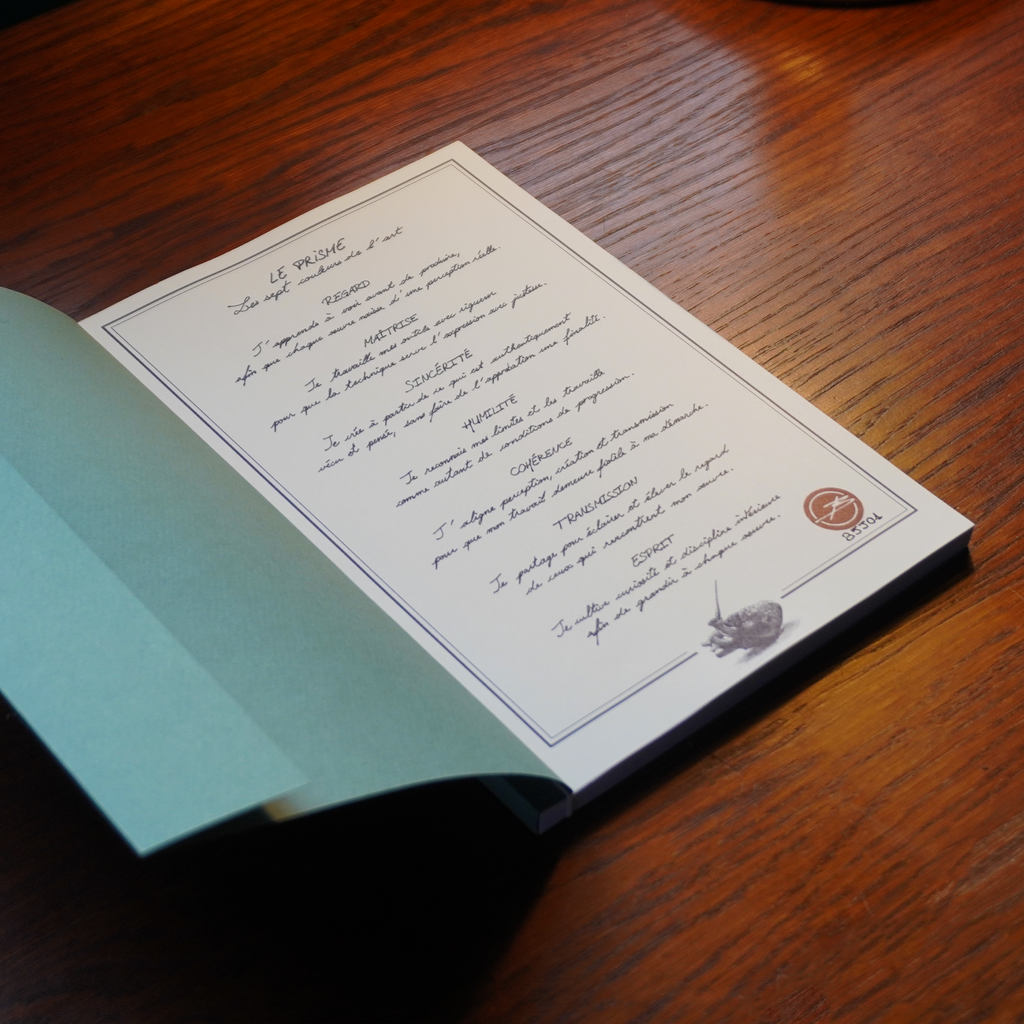 LE PRISME
Les sept couleurs de l'art
REGARD
J'apprends à voir avant de produire,
afin que chaque œuvre naisse d'une perception réelle.
MAÎTRISE
Je travaille mes outils avec rigueur
pour que la technique serve l'expression avec justesse.
SINCÉRITÉ
Je crée à partir de ce qui est authentiquement
vécu et pensé, sans faire de l'approbation une finalité.
HUMILITÉ
Je reconnais mes limites et les travaille
comme autant de conditions de progression.
COHÉRENCE
J'aligne perception, création et transmission
pour que mon travail demeure fidèle à ma démarche.
TRANSMISSION
Je partage pour éclairer et élever le regard
de ceux qui rencontrent mon œuvre.
ESPRIT
Je cultive curiosité et discipline intérieure
afin de grandir à chaque œuvre.